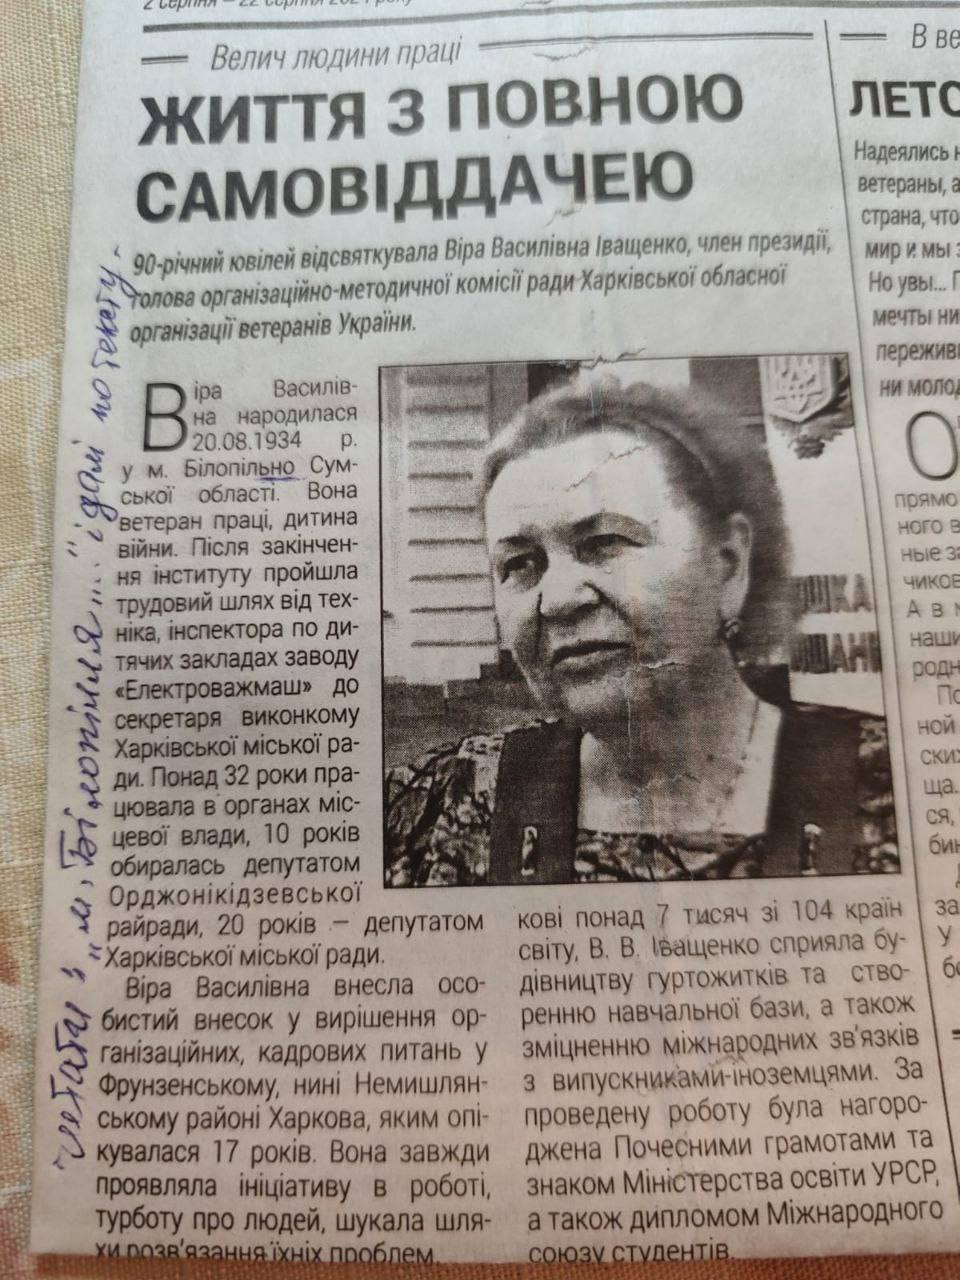 2 серпня – 22 серпня
Велич людини праці
ЖИТТЯ З ПОВНОЮ
САМОВІДДАЧЕЮ
90-річний ювілей відсвяткувала Віра Василівна Іващенко, член президії,
голова організаційно-методичної комісії ради Харківської обласної
організації ветеранів України.
Віра Василів-
на народилася
20.08.1934 р.
у м. Білопільно Сум-
ської області. Вона
ветеран праці, дитина
війни. Після закінчен-
ня інституту пройшла
трудовий шлях від тех-
ніка, інспектора по ди-
тячих закладах заводу
«Електроважмаш» до
секретаря виконкому
Харківської міської ра-
ди. Понад 32 роки пра-
цювала в органах міс-
цевої влади, 10 років
обиралась депутатом
Орджонікідзевської
райради, 20 років – депутатом
Харківської міської ради.
Віра Василівна внесла осо-
бистий внесок у вирішення ор-
ганізаційних, кадрових питань у
Фрунзенському, нині Немишлян-
ському районі Харкова, яким опі-
кувалася 17 років. Вона завжди
проявляла ініціативу в роботі,
турботу про людей, шукала шля-
хи розв'язання їхніх проблем.
кові понад 7 тисяч зі 104 країн
світу, В. В. Іващенко сприяла бу-
дівництву гуртожитків та ство-
ренню навчальної бази, а також
зміцненню міжнародних зв'язків
з випускниками-іноземцями. За
проведену роботу була нагоро-
джена Почесними грамотами та
знаком Міністерства освіти УРСР,
а також дипломом Міжнародного
союзу студентів.
читати з "м. Білопілля..." і далі по тексту.
В ве
ЛЕТО
Надеялись н
ветераны, а
страна, что
мир и мы з
Но увы... П
мечты ни
пережив
ни молод
О
прямо
ного в
ные за
чиков
А в м
наши
родн
По
ной
ских
ща.
ся,
бин
за
У
бо